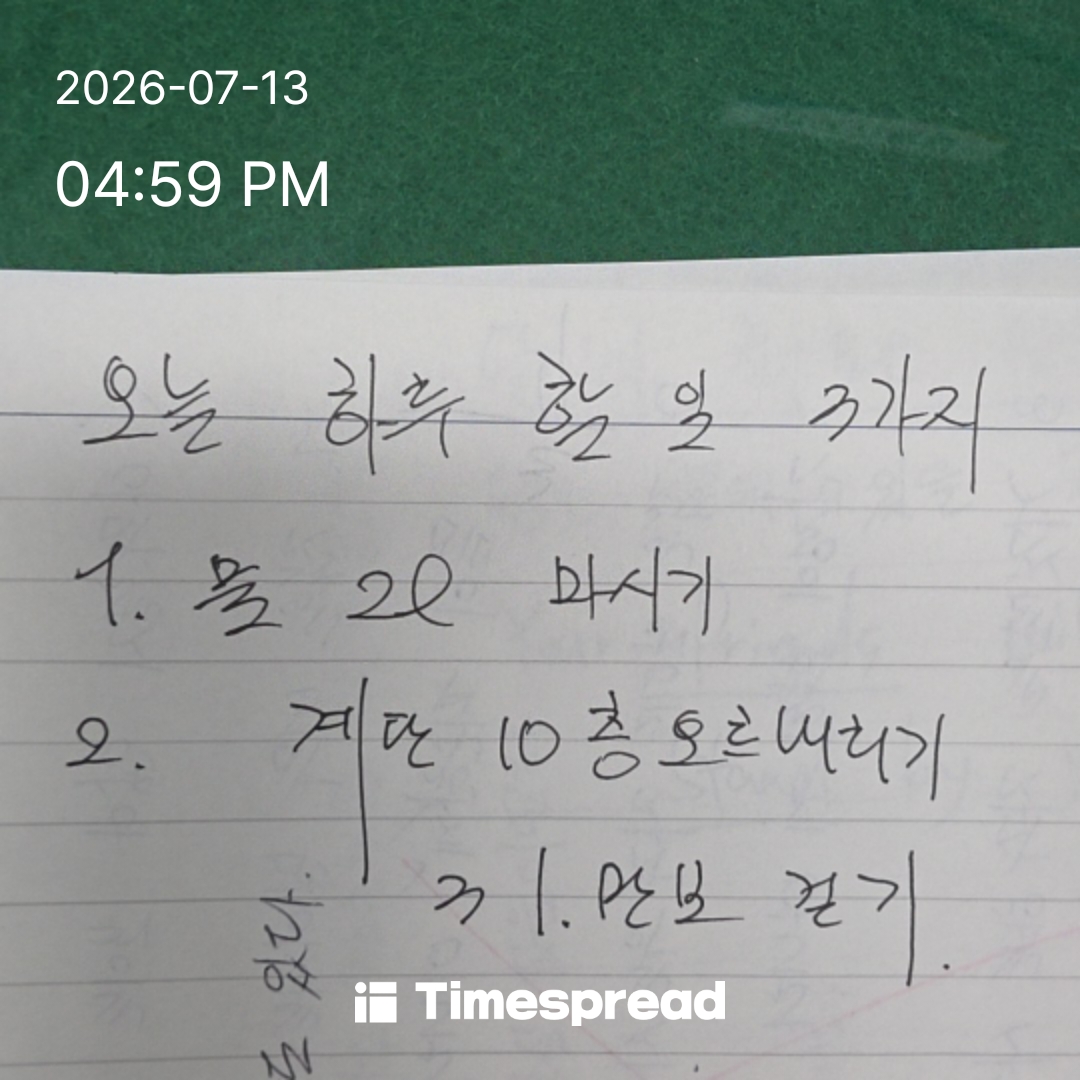 2026-07-13
04:59 PM
오늘 하루 할 일 3가지
1. 물 2l 마시기
2. 계단 10층 오르내리기
3 1. 만보 걷기.
있다.
Timespread